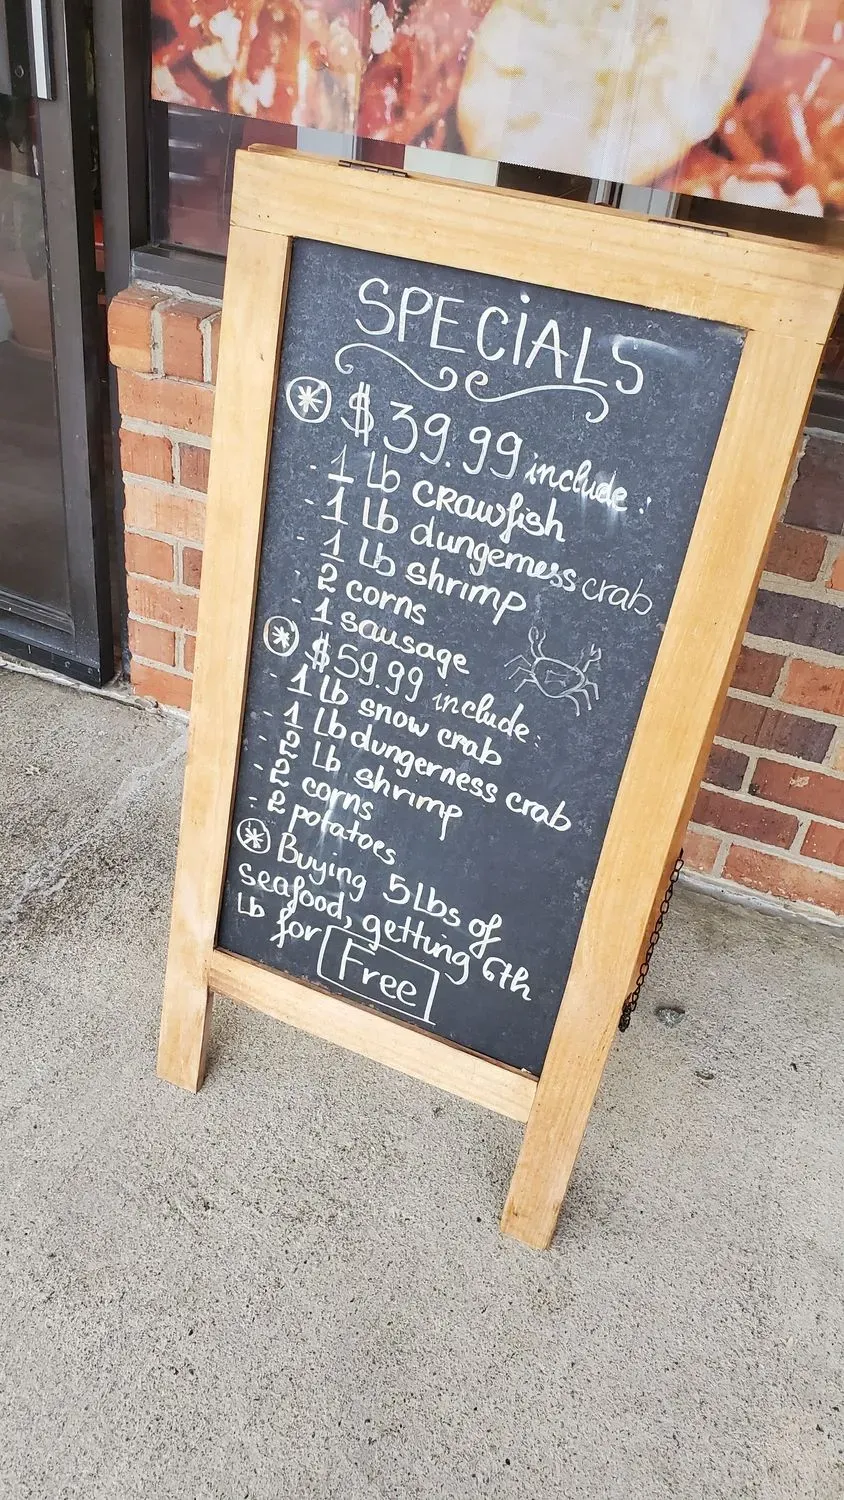 SPECiALS
$39.99 include:
- 1 Lb CRawfish
- 1 Lb dungerness crab
- 1 Lb shrimp
- 2 corns
- 1 sausage
$59.99 include:
- 1 Lb snow crab
- 1 Lb dungerness crab
- 2 Lb shrimp
- 2 corns
- 2 potatoes
Buying 5Lbs of
seafood, getting 6th
Lb for Free